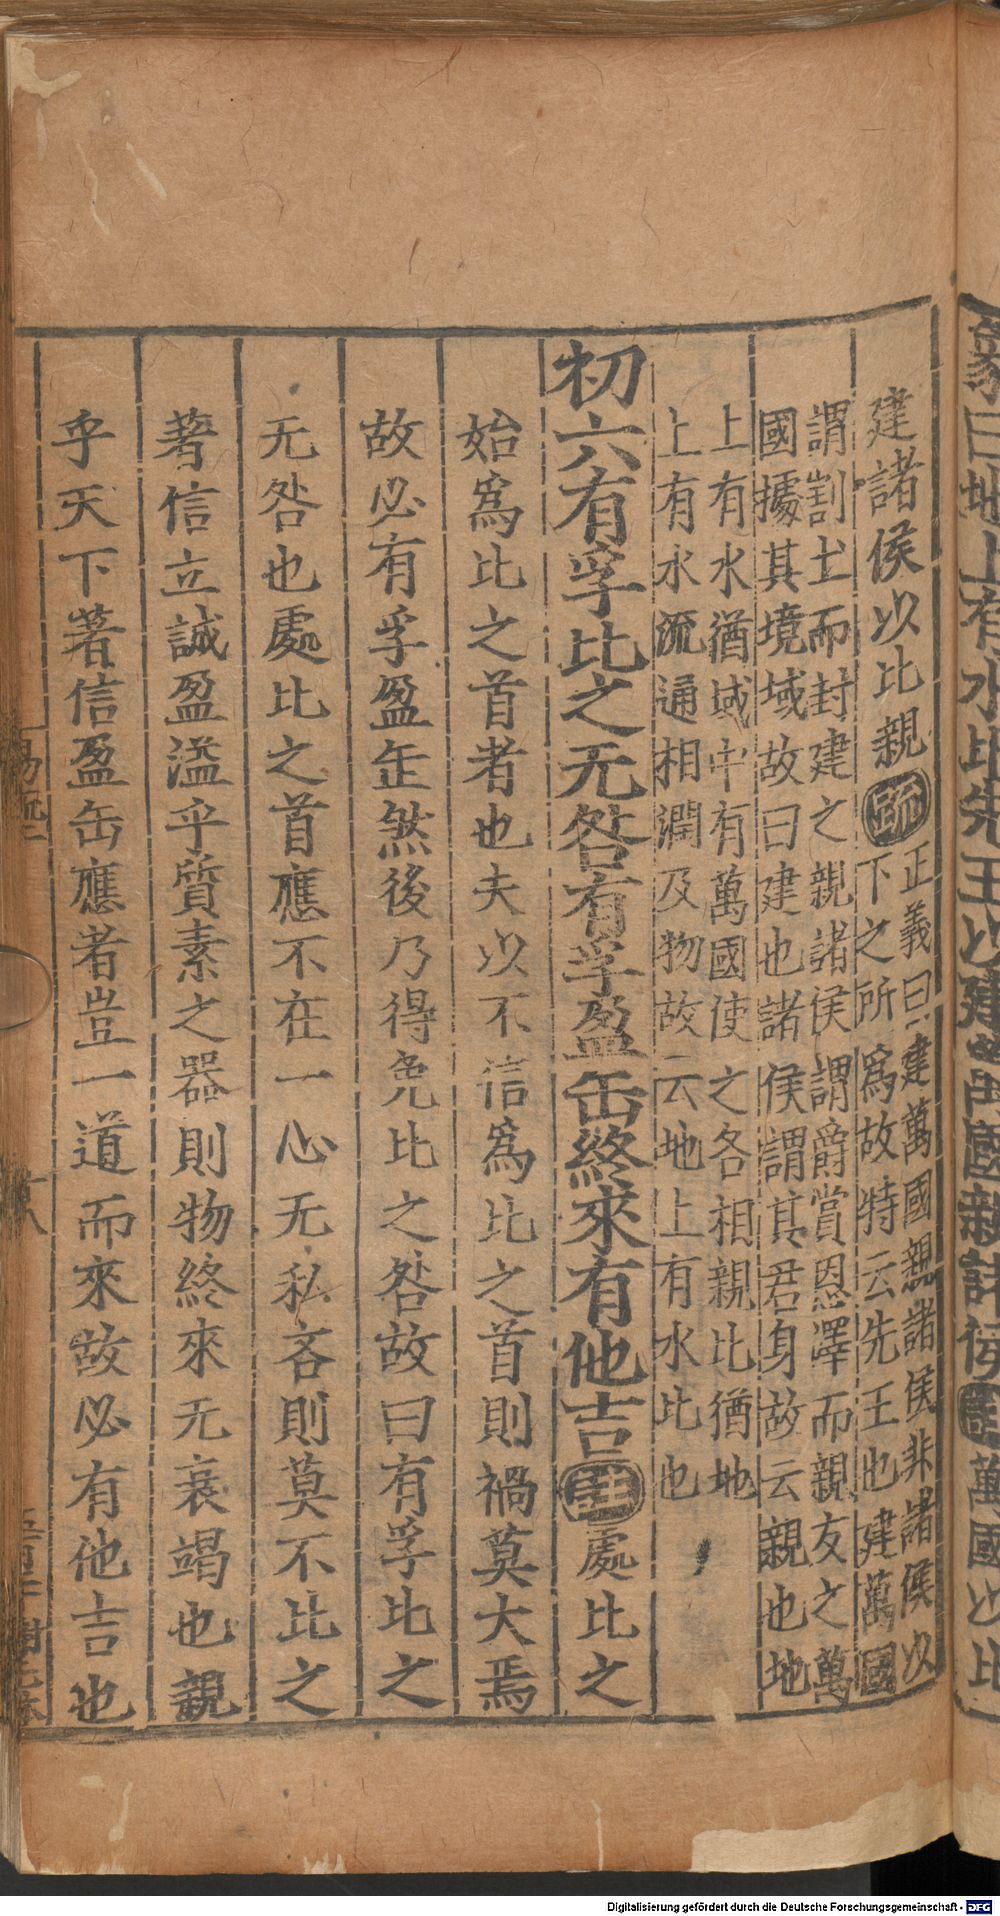 象曰地上有水比先王以建萬國親諸侯註萬國以比
建諸侯以比親疏
正義曰建萬國親諸侯非諸侯以
下之所為故特云先王也建萬國
謂割土而封建之親諸侯謂爵賞恩澤而親友之萬
國據其境域故曰建也諸侯謂其君身故云親也地
上有水猶域中有萬國使之各相親比猶地
上有水流通相潤及物故云地上有水比也
初六有孚比之无咎有孚盈缶終來有他吉註處比之
始爲比之首者也夫以不信爲比之首則禍莫大焉
故必有孚盈缶然後乃得免比之咎故曰有孚比之
无咎也處比之首應不在一心无私吝則莫不比之
著信立誠盈溢乎質素之器則物終來无衰竭也親
乎天下著信盈缶應者豈一道而來故必有他吉也
易疏二
十八
Digitalisierung gefördert durch die Deutsche Forschungsgemeinschaft - DFG